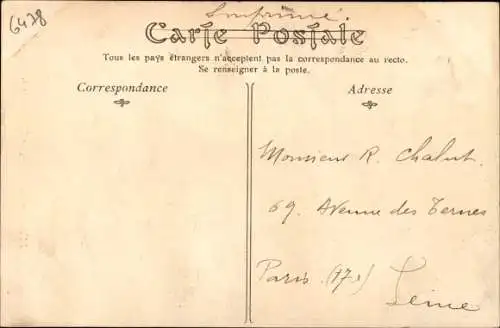 6438
Imprimé.
Carte Postale
Tous les pays étrangers n'acceptent pas la correspondance au recto.
Se renseigner à la poste.
Correspondance
Adresse
Monsieur R. Chalut.
69. Avenue des Ternes
Paris (17e) Seine